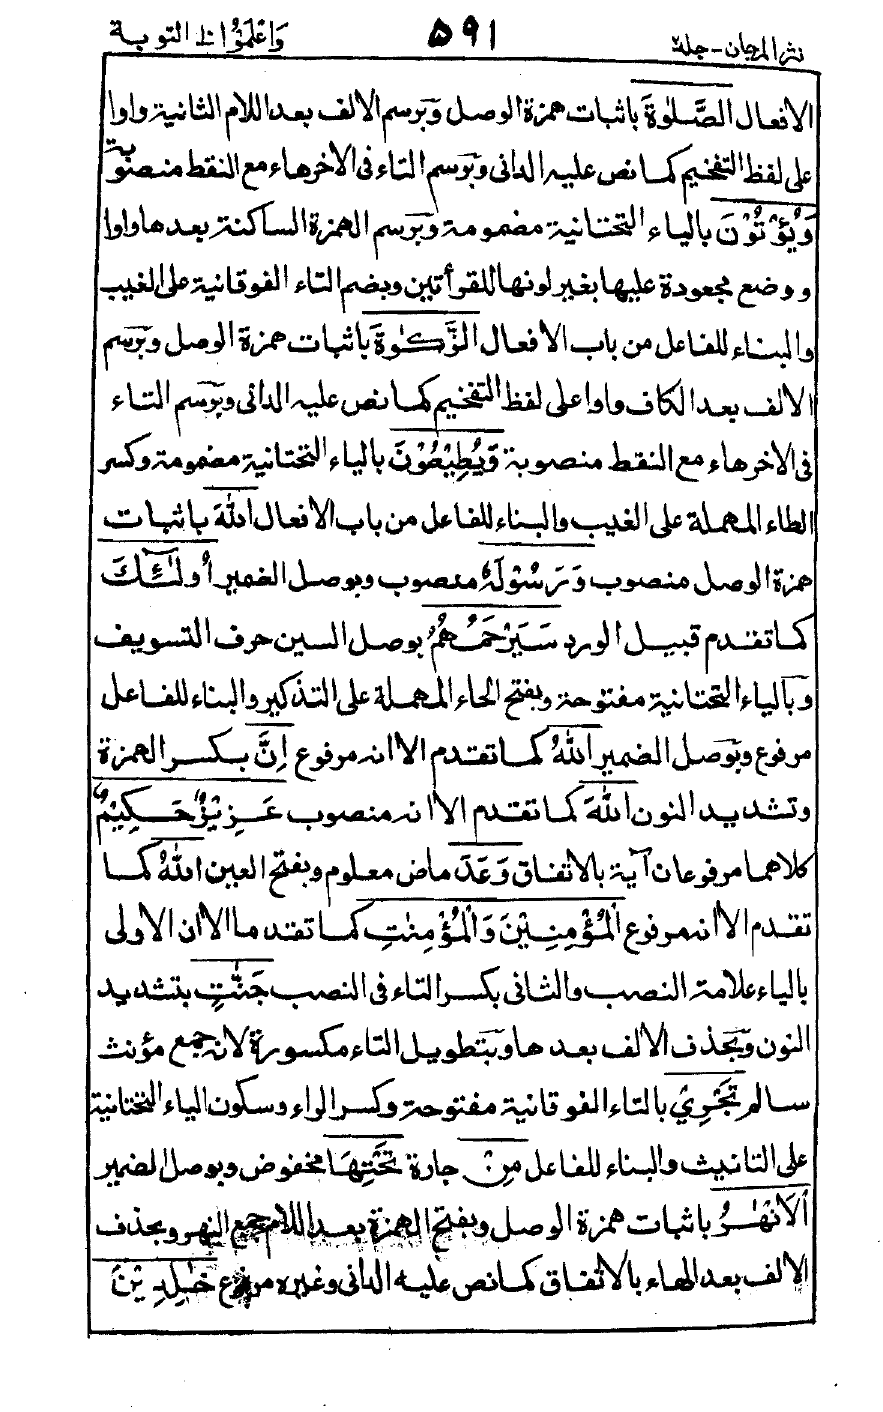 نثر المرجان - جلد۲ ۵۹۱ وَاعْلَمُوْا ۱۰ التوبة
الافعال الصَّلٰوةَ باثبات همزة الوصل وبَرسم الالف بعد اللام الثانية واوا
على لفظ التفخيم كما نص عليه الدانى وبَرسم التاء فى الاخر هاء مع النقط منصوبة
وَيُؤْتُوْنَ بالياء التحتانية مضمومة وبَرسم الهمزة الساكنة بعدها واوا
ووضع مجعودة عليها بغير لونها للقرأتين وبضم التاء الفوقانية على الغيب
والبناء للفاعل من باب الافعال الزَّكٰوةَ باثبات همزة الوصل وبَرسم
الالف بعد الكاف واوا على لفظ التفخيم كما نص عليه الدانى وبَرسم التاء
فى الاخر هاء مع النقط منصوبة وَيُطِيْعُوْنَ بالياء التحتانية مضمومة وكسر
الطاء المهملة على الغيب والبناء للفاعل من باب الافعال اللهَ باثبات
همزة الوصل منصوب وَرَسُوْلَهٗ منصوب وبوصل الضمير اُولٰٓئِكَ
كما تقدم قبيل الورد سَيَرْحَمُهُمُ بوصل السين حرف التسويف
وبَالياء التحتانية مفتوحة وبفتح الحاء المهملة على التذكير والبناء للفاعل
مرفوع وبَوصل الضمير اللهُ كما تقدم الا انه مرفوع اِنَّ بكسر الهمزة
وتشديد النون اللهَ كما تقدم الا انه منصوب عَزِيْزٌ حَكِيْمٌ
كلاهما مرفوعان آية بالاتفاق وَعَدَ ماض معلوم وبفتح العين اللهُ كما
تقدم الا انه مرفوع الْمُؤْمِنِيْنَ وَالْمُؤْمِنٰتِ كما تقدما الا ان الاولى
بالياء علامة النصب والثانى بكسر التاء فى النصب جَنّٰتٍ بتشديد
النون وبَحذف الالف بعدها وبَتطويل التاء مكسورة لانه جمع مؤنث
سالم تَجْرِيْ بالتاء الفوقانية مفتوحة وكسر الراء وسكون الياء التحتانية
على التانيث والبناء للفاعل مِنْ جارة تَحْتِهَا مخفوض وبوصل لضمير
الْاَنْهٰرُ باثبات همزة الوصل وبفتح الهمزة بعد اللام جمع النهر وبحذف
الالف بعد الهاء بالاتفاق كما نص عليه الدانى وغيره مرفوع خٰلِدِيْنَ